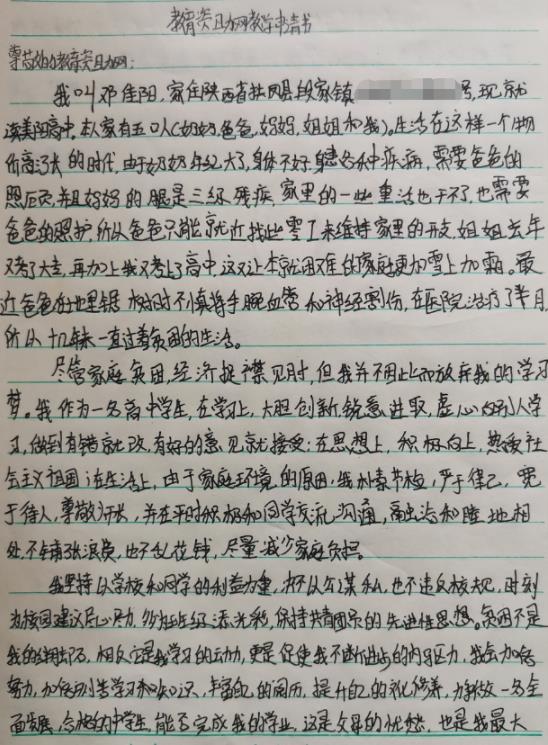 教育资助网教学申请书
尊敬的教育资助网:
我叫邓佳阳,家住陕西省扶风县段家镇 号,现就
读美阳高中。本人家有五口人(奶奶、爸爸、妈妈、姐姐和我)。生活在这样一个物
价高涨的时代,由于奶奶年纪大了,身体不好,身患各种疾病,需要爸爸的
照顾,并且妈妈的腿是三级残疾,家里的一些重活也干不了,也需要
爸爸的照护,所以爸爸只能就近找些零工来维持家里的开支,姐姐去年
又考了大专,再加上我又考上了高中,这又让本就困难的家庭更加雪上加霜。最
近爸爸在地里锯树时不慎将手腕血管和神经割伤,在医院治疗了半月,
所以十几年来一直过着贫困的生活。
尽管家庭贫困,经济捉襟见肘,但我并不因此而放弃我的学习
梦。我作为一名高中学生,在学习上,大胆创新锐意进取,虚心向别人学
习,做到有错就改,有好的意见就接受;在思想上,积极向上,热爱社
会主义祖国;在生活上,由于家庭环境的原因,我朴素节俭,严于律己,宽
于待人,尊敬师长,并在平时积极和同学交流沟通,融洽和睦地相
处,不铺张浪费,也不乱花钱,尽量减少家庭负担。
我坚持以学校和同学的利益为重,不以公谋私,也不违反校规,时刻
为校园建设尽心尽力,努力为班级添光彩,保持共青团员的先进性思想。贫困不是
我的绊脚石,相反它是我学习的动力,更是促使我不断进步的内在压力,我会加倍
努力,加倍刻苦学习和知识,丰富自己的阅历,提升自己的文化修养,力争做一名全
面发展,合格的中学生,能否完成我的学业,这是父母的忧愁,也是我最大